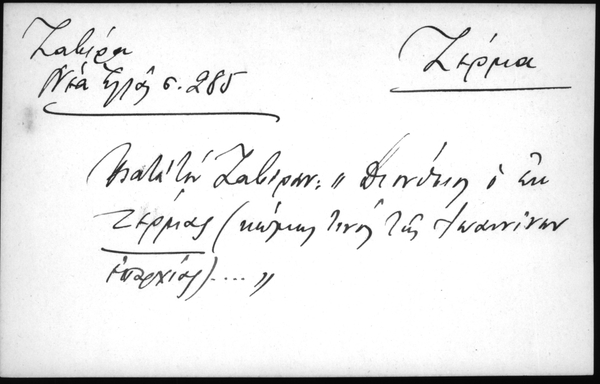 Ζαβίρα
Νέα Ἑλλὰς σ. 285
Ζέρμα
Κατὰ τὸν Ζαβίραν: „ Διονύσιος ὁ ἐκ
Ζέρμας (κώμης τινός τῆς Ἰωαννίνων
ἐπαρχίας) .... „